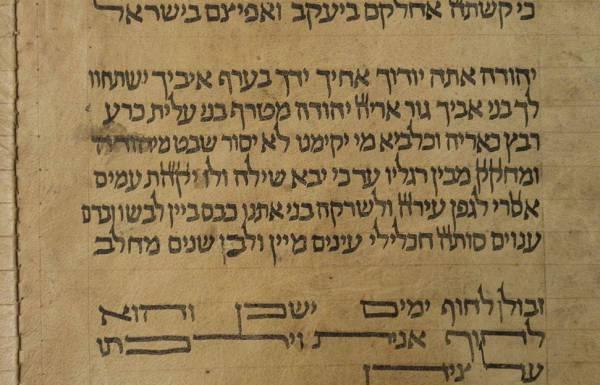 כי קשתה אחלקם ביעקב ואפיצם בישראל
יהודה אתה יודוך אחיך ידך בערף איביך ישתחוו
לך בני אביך גור אריה יהודה מטרף בני עלית כרע
רבץ כאריה וכלביא מי יקימנו לא יסור שבט מיהודה
ומחקק מבין רגליו עד כי יבא שילה ולו יקהת עמים
אסרי לגפן עירה ולשרקה בני אתנו כבס ביין לבשו ובדם
ענבים סותה חכלילי עינים מיין ולבן שנים מחלב
זבולן לחוף ימים ישכן והוא
לחוף אנית וירכתו
על צידן